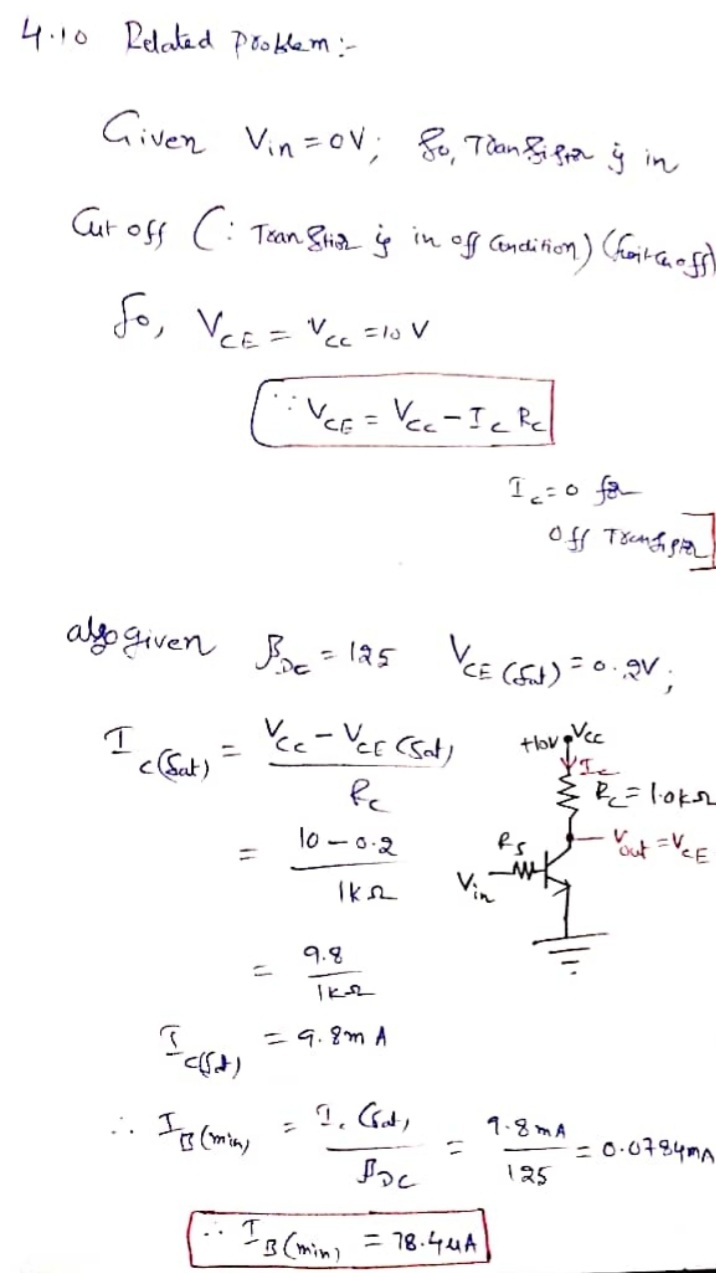 4.10 Related Problem :-
Given Vin = 0V; So, Transistor is in
Cut off (∵ Transistor is in off Condition) (Switch off)
So, VCE = VCC = 10 V
∵ VCE = VCC - IC RC
IC = 0 for
Off Transistor]
also given βDC = 125 VCE (Sat) = 0.2V;
IC(Sat) = VCC - VCE (Sat) / RC
+10V VCC
IC
RC = 1.0kΩ
= 10 - 0.2 / 1kΩ
RS
Vout = VCE
Vin
= 9.8 / 1kΩ
IC(Sat) = 9.8m A
∴ IB(min) = IC (Sat) / βDC = 9.8mA / 125 = 0.0784mA
∴ IB(min) = 78.4uA